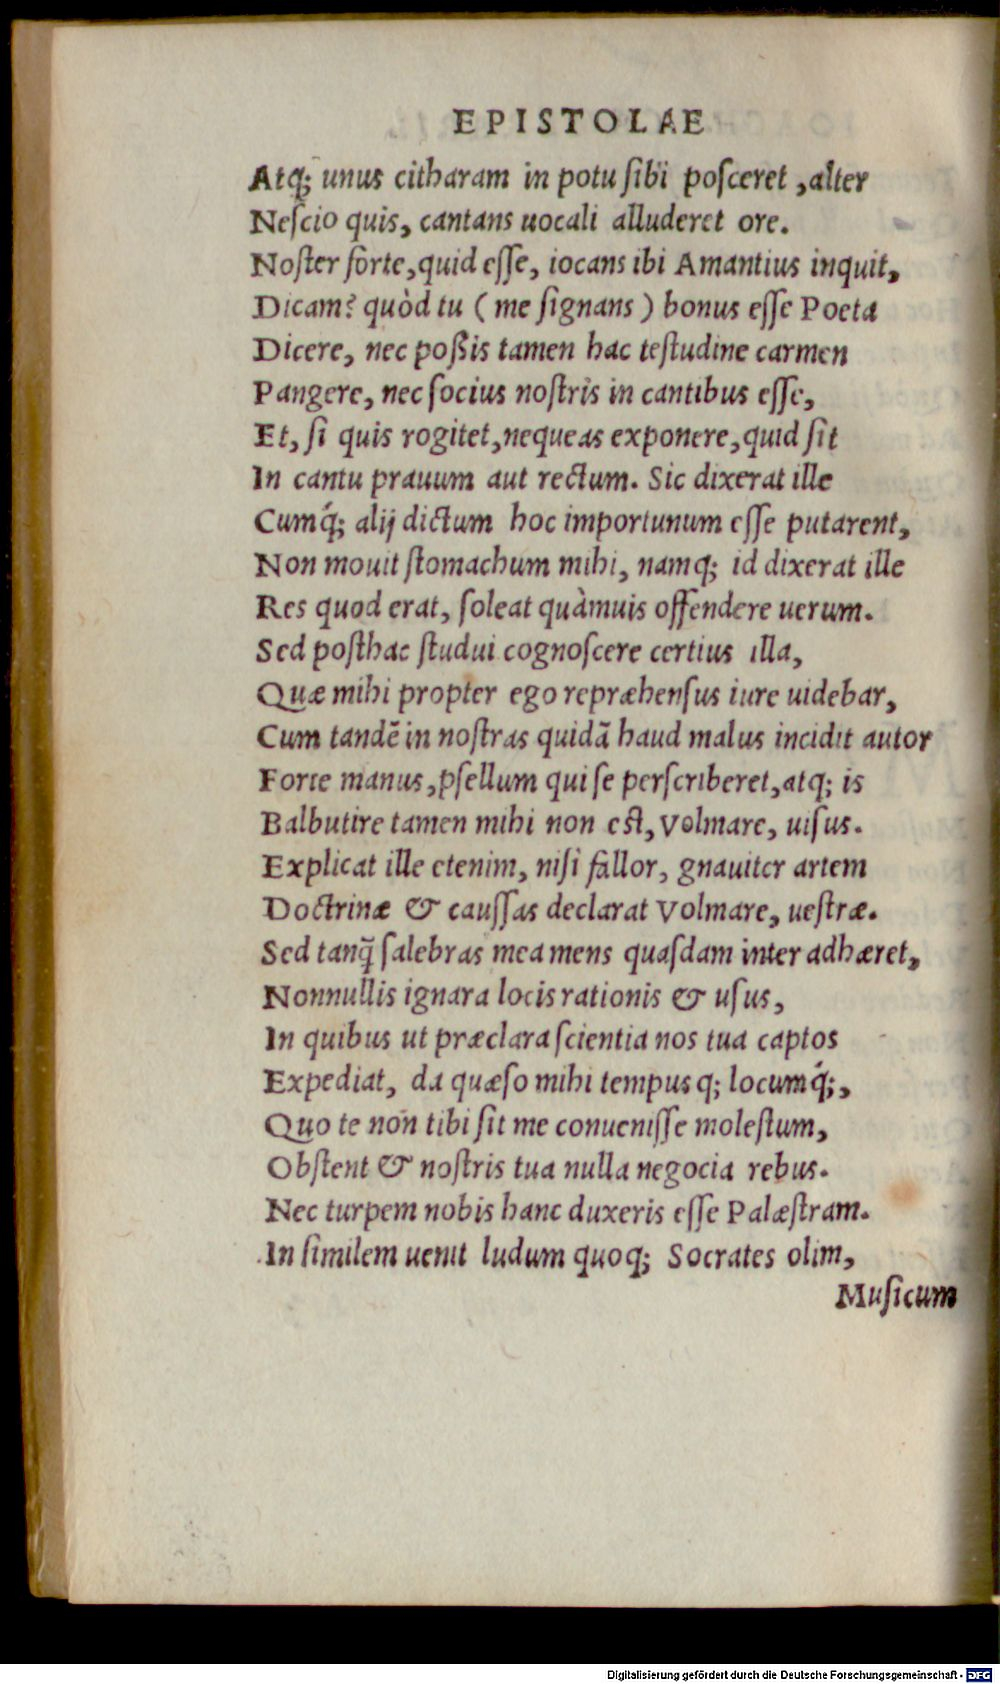 EPISTOLAE
Atq; unus citharam in potu sibi posceret, alter
Nescio quis, cantans uocali alluderet ore.
Noster forte, quid esse, iocans ibi Amantius inquit,
Dicam? quòd tu ( me signans ) bonus esse Poeta
Dicere, nec poßis tamen hac testudine carmen
Pangere, nec socius nostris in cantibus esse,
Et, si quis rogitet, nequeas exponere, quid sit
In cantu prauum aut rectum. Sic dixerat ille
Cumq́; alij dictum hoc importunum esse putarent,
Non mouit stomachum mihi, namq; id dixerat ille
Res quod erat, soleat quàmuis offendere uerum.
Sed posthac studui cognoscere certius illa,
Quæ mihi propter ego repræhensus iure uidebar,
Cum tandẽ in nostras quidã haud malus incidit autor
Forte manus, psellum qui se perscriberet, atq; is
Balbutire tamen mihi non est, Volmare, uisus.
Explicat ille etenim, nisi fallor, gnauiter artem
Doctrinæ & caussas declarat Volmare, uestræ.
Sed tanq̃ salebras mea mens quasdam inter adhæret,
Nonnullis ignara locis rationis & usus,
In quibus ut præclara scientia nos tua captos
Expediat, da quæso mihi tempus q; locumq́;,
Quo te non tibi sit me conuenisse molestum,
Obstent & nostris tua nulla negocia rebus.
Nec turpem nobis hanc duxeris esse Palæstram.
In similem uenit ludum quoq; Socrates olim,
Musicum
Digitalisierung gefördert durch die Deutsche Forschungsgemeinschaft - DFG